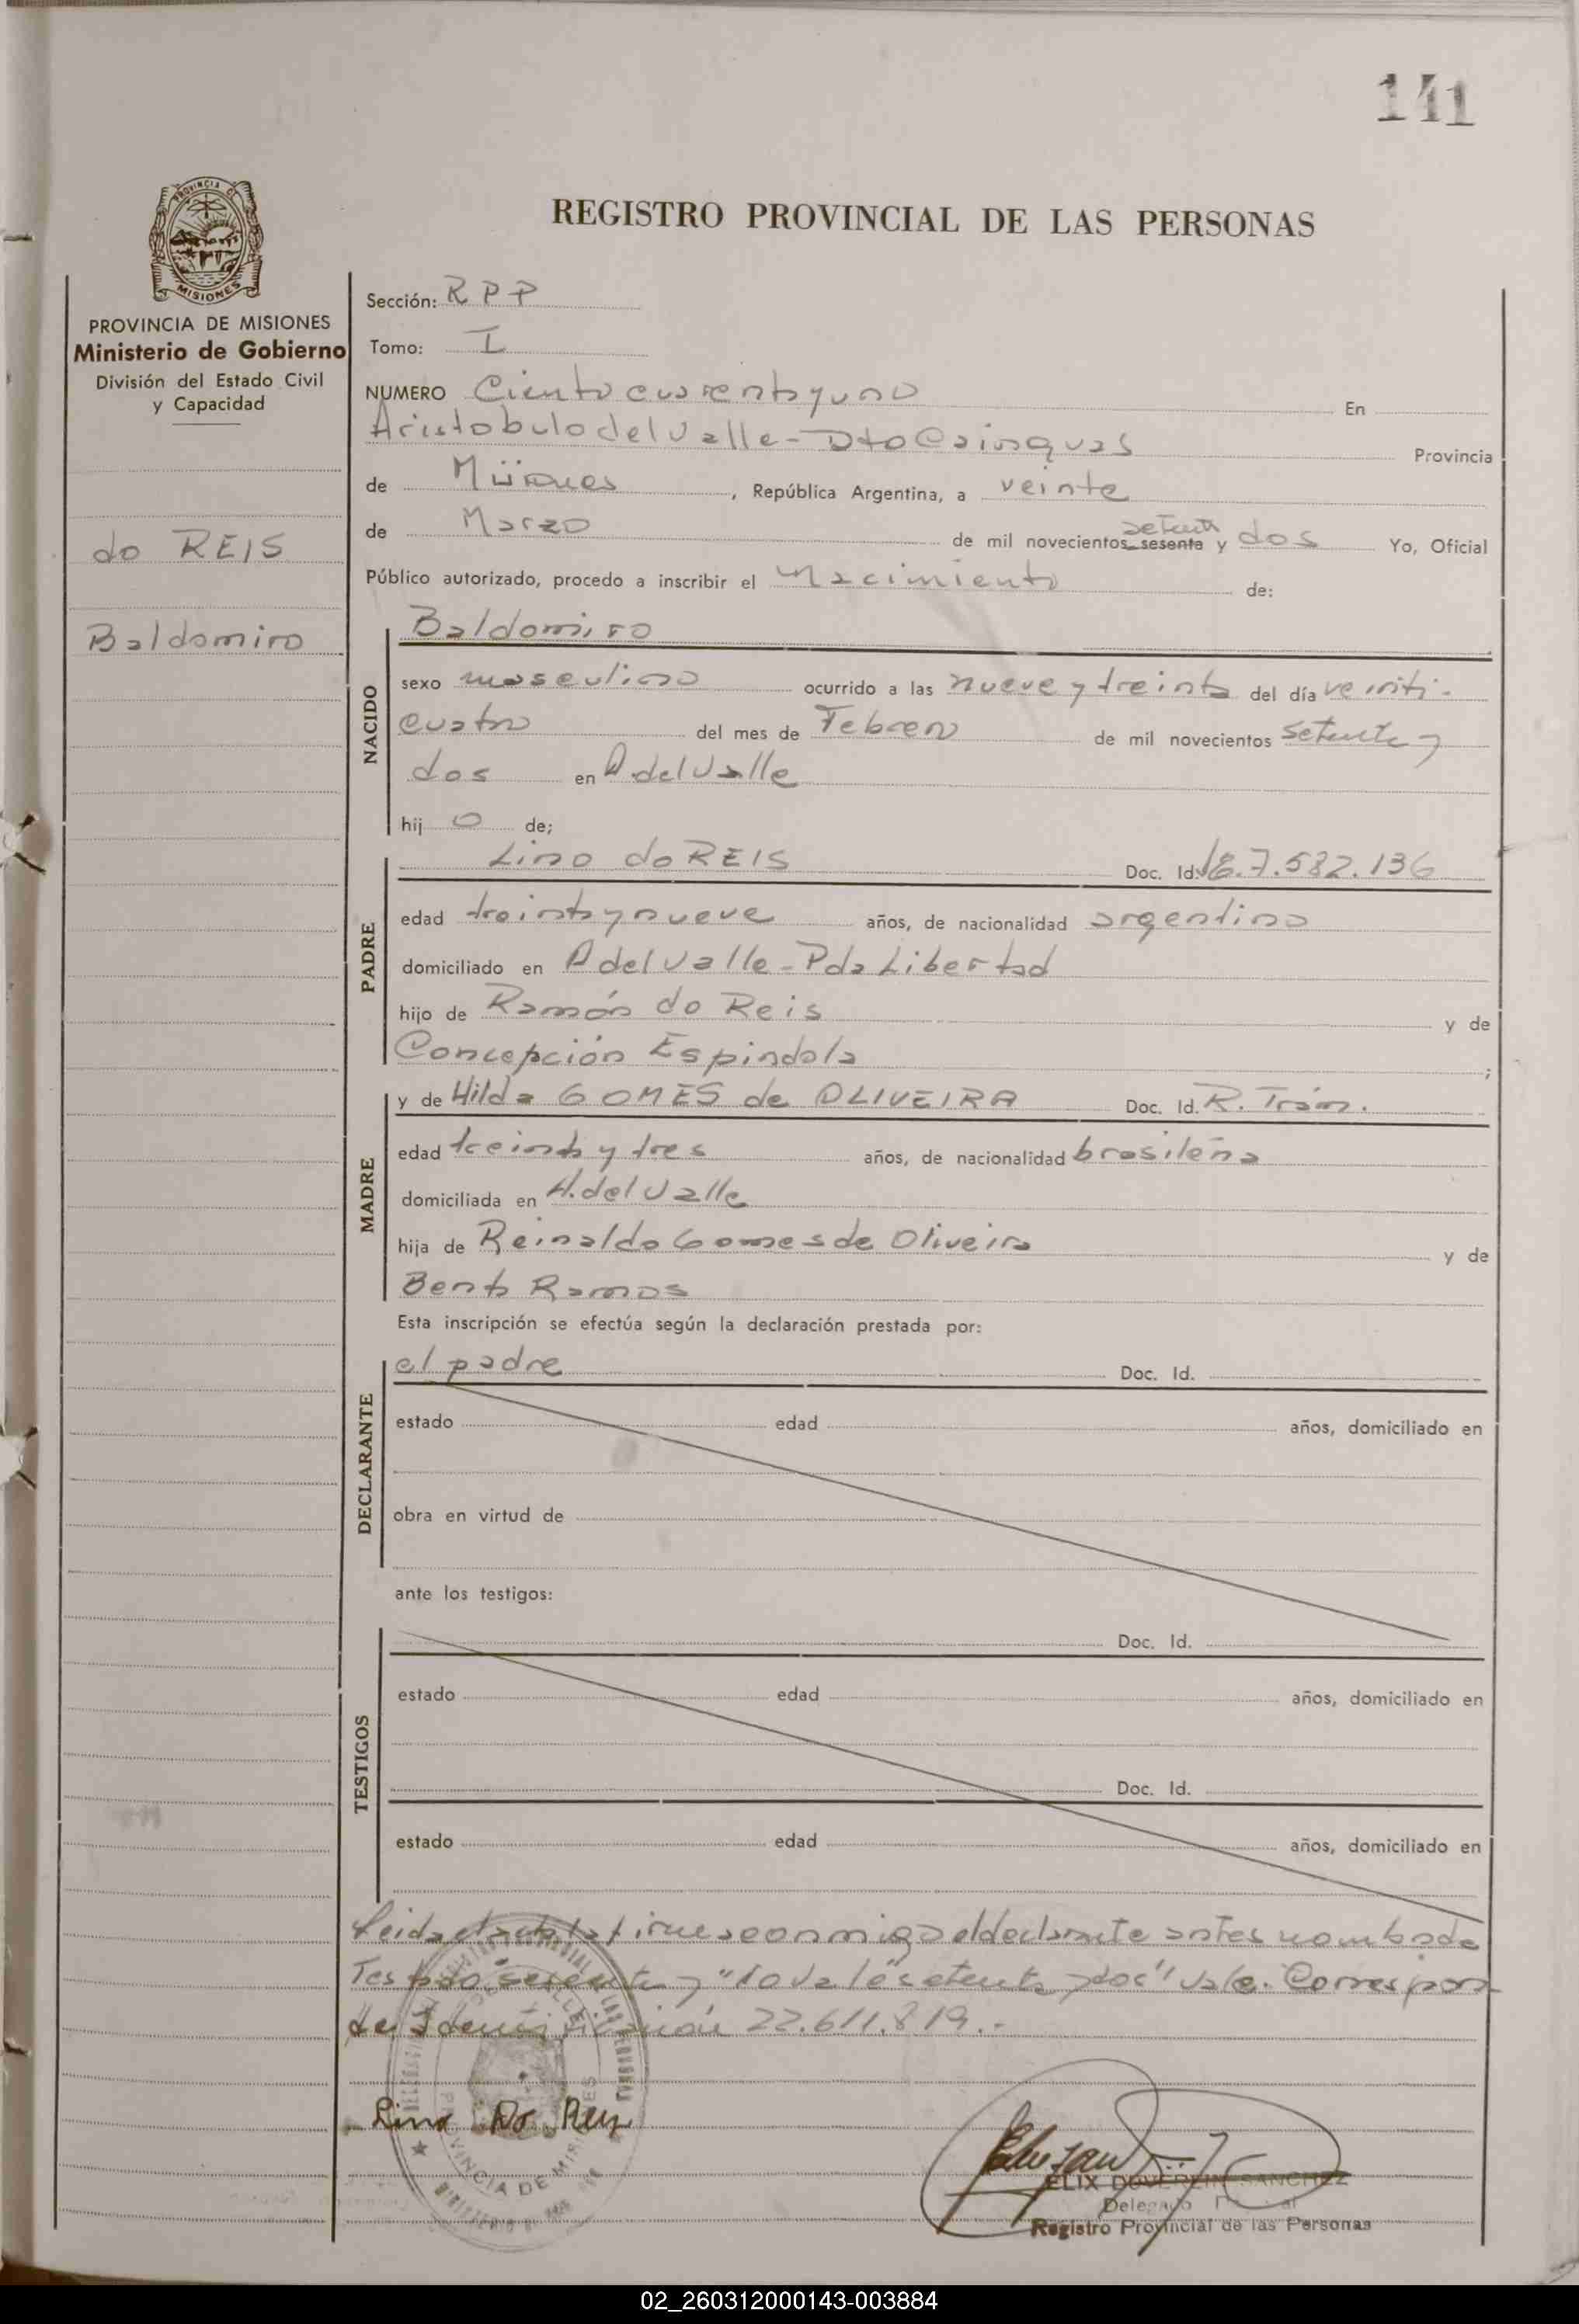 141
REGISTRO PROVINCIAL DE LAS PERSONAS
PROVINCIA DE MISIONES
Ministerio de Gobierno
División del Estado Civil
y Capacidad
do REIS
Baldomiro
Sección: R P P
Tomo: I
NUMERO Ciento cuarenta y uno En
Aristobulo del Valle - Dto Cainguas Provincia
de Misiones, República Argentina, a veinte
de Marzo de mil novecientos sesenta setenta y dos Yo, Oficial
Público autorizado, procedo a inscribir el Nacimiento de:
NACIDO
Baldomiro
sexo masculino ocurrido a las nueve y treinta del día veinti-
cuatro del mes de Febrero de mil novecientos setenta y
dos en A del Valle
hij o de;
PADRE
Lino do REIS Doc. Id. 7.582.136
edad treinta y nueve años, de nacionalidad argentino
domiciliado en A del Valle - Pda Libertad
hijo de Ramón do Reis y de
Concepción Espindola ;
MADRE
y de Hilda GOMES de OLIVEIRA Doc. Id. R. Trám.
edad treinta y tres años, de nacionalidad brasileña
domiciliada en A. del Valle
hija de Reinaldo Gomes de Oliveira y de
Benta Ramos
Esta inscripción se efectúa según la declaración prestada por:
DECLARANTE
el padre Doc. Id.
estado edad años, domiciliado en
obra en virtud de
ante los testigos:
TESTIGOS
Doc. Id.
estado edad años, domiciliado en
Doc. Id.
estado edad años, domiciliado en
Leida el acta la firma conmigo el declarante antes nombrado
Testado "sesenta y" no vale "setenta y dos" vale. Correspon-
de Identificación 22.611.819.-
Lino Do Reis
PROVINCIA DE MISIONES
FELIX SANCHEZ
Delegado
Registro Provincial de las Personas
02_260312000143-003884